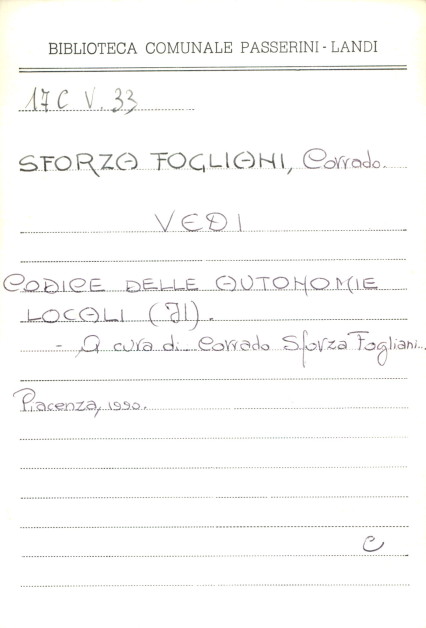 BIBLIOTECA COMUNALE PASSERINI-LANDI
17C V. 33
SFORZA FOGLIANI, Corrado.
VEDI
CODICE DELLE AUTONOMIE
LOCALI (Il).
- A cura di Corrado Sforza Fogliani.
Piacenza, 1990.
C